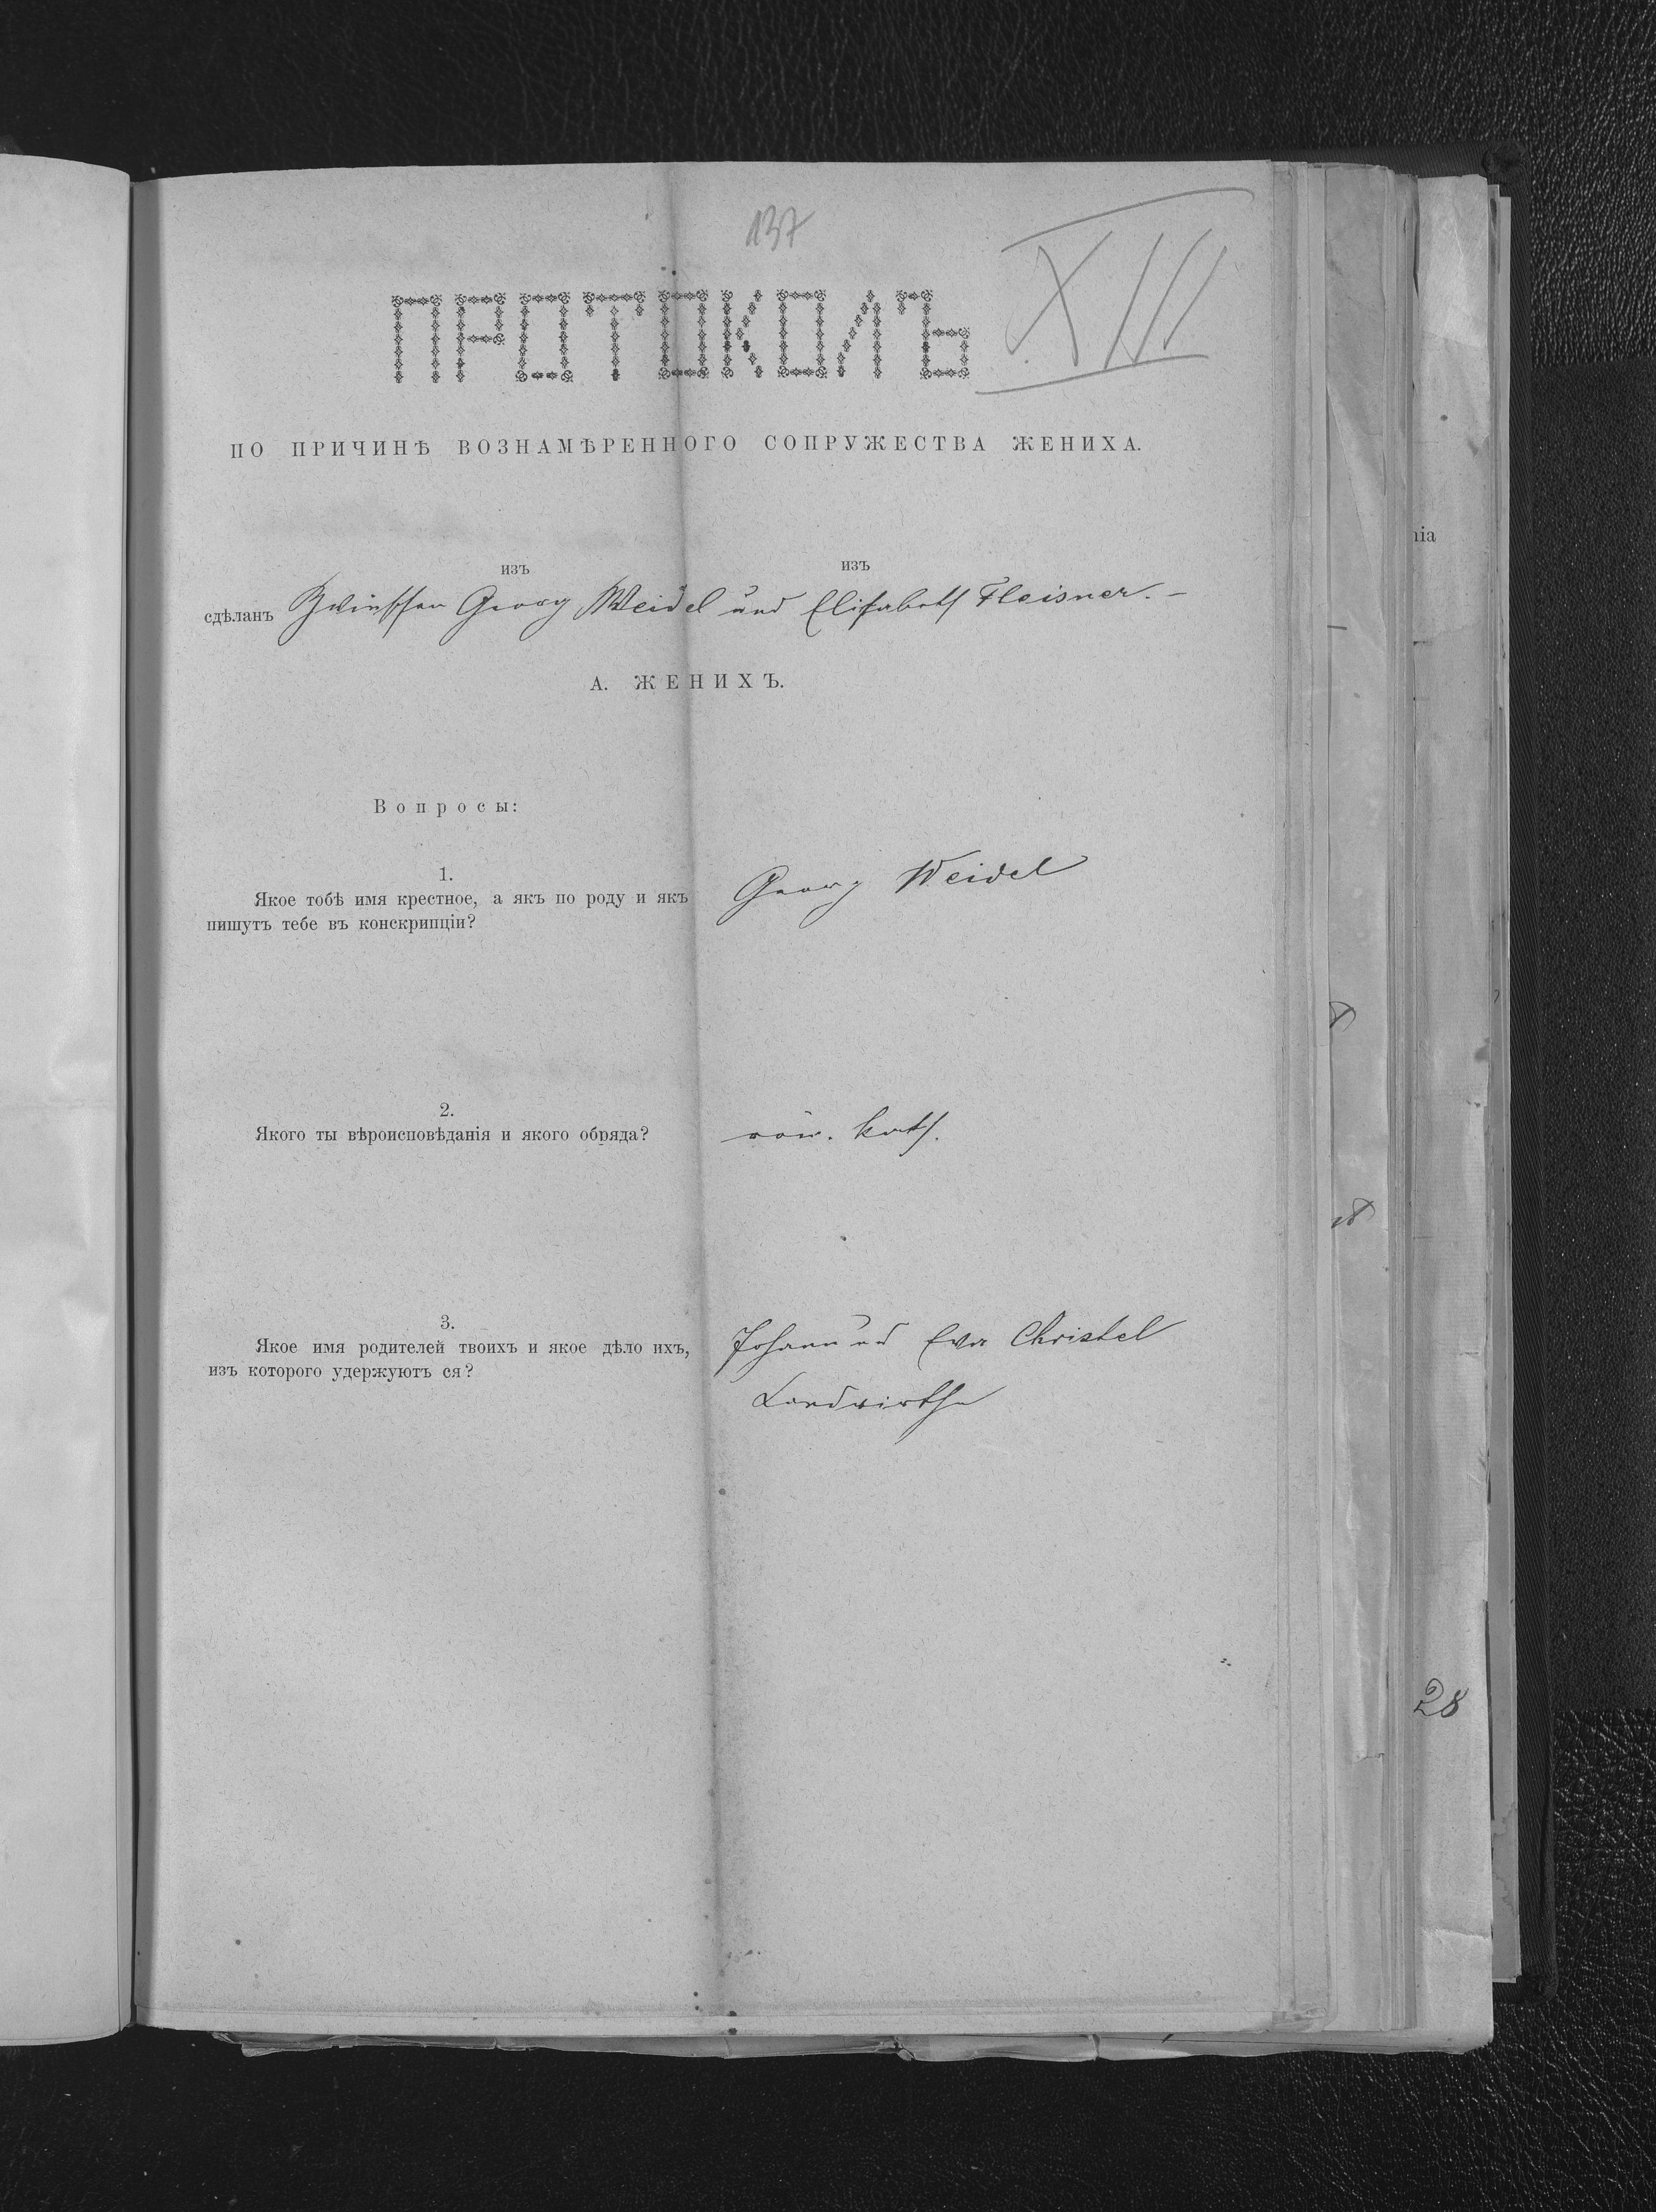 137
XIII
ПРОТОКОЛЪ
ПО ПРИЧИНѢ ВОЗНАМѢРЕННОГО СОПРУЖЕСТВА ЖЕНИХА.
изъ изъ
сдѣланъ Zwischen Georg Weidel und Elisabeth Fleisner. –
А. ЖЕНИХЪ.
Вопросы:
1.
Якое тобѣ имя крестное, а якъ по роду и якъ
пишутъ тебе въ конскрипціи?
Georg Weidel
2.
Якого ты вѣроисповѣданія и якого обряда?
röm. kath.
3.
Якое имя родителей твоихъ и якое дѣло ихъ,
изъ которого удержуютъ ся?
Johann und Eva Christel
Landwirthe
nia
28